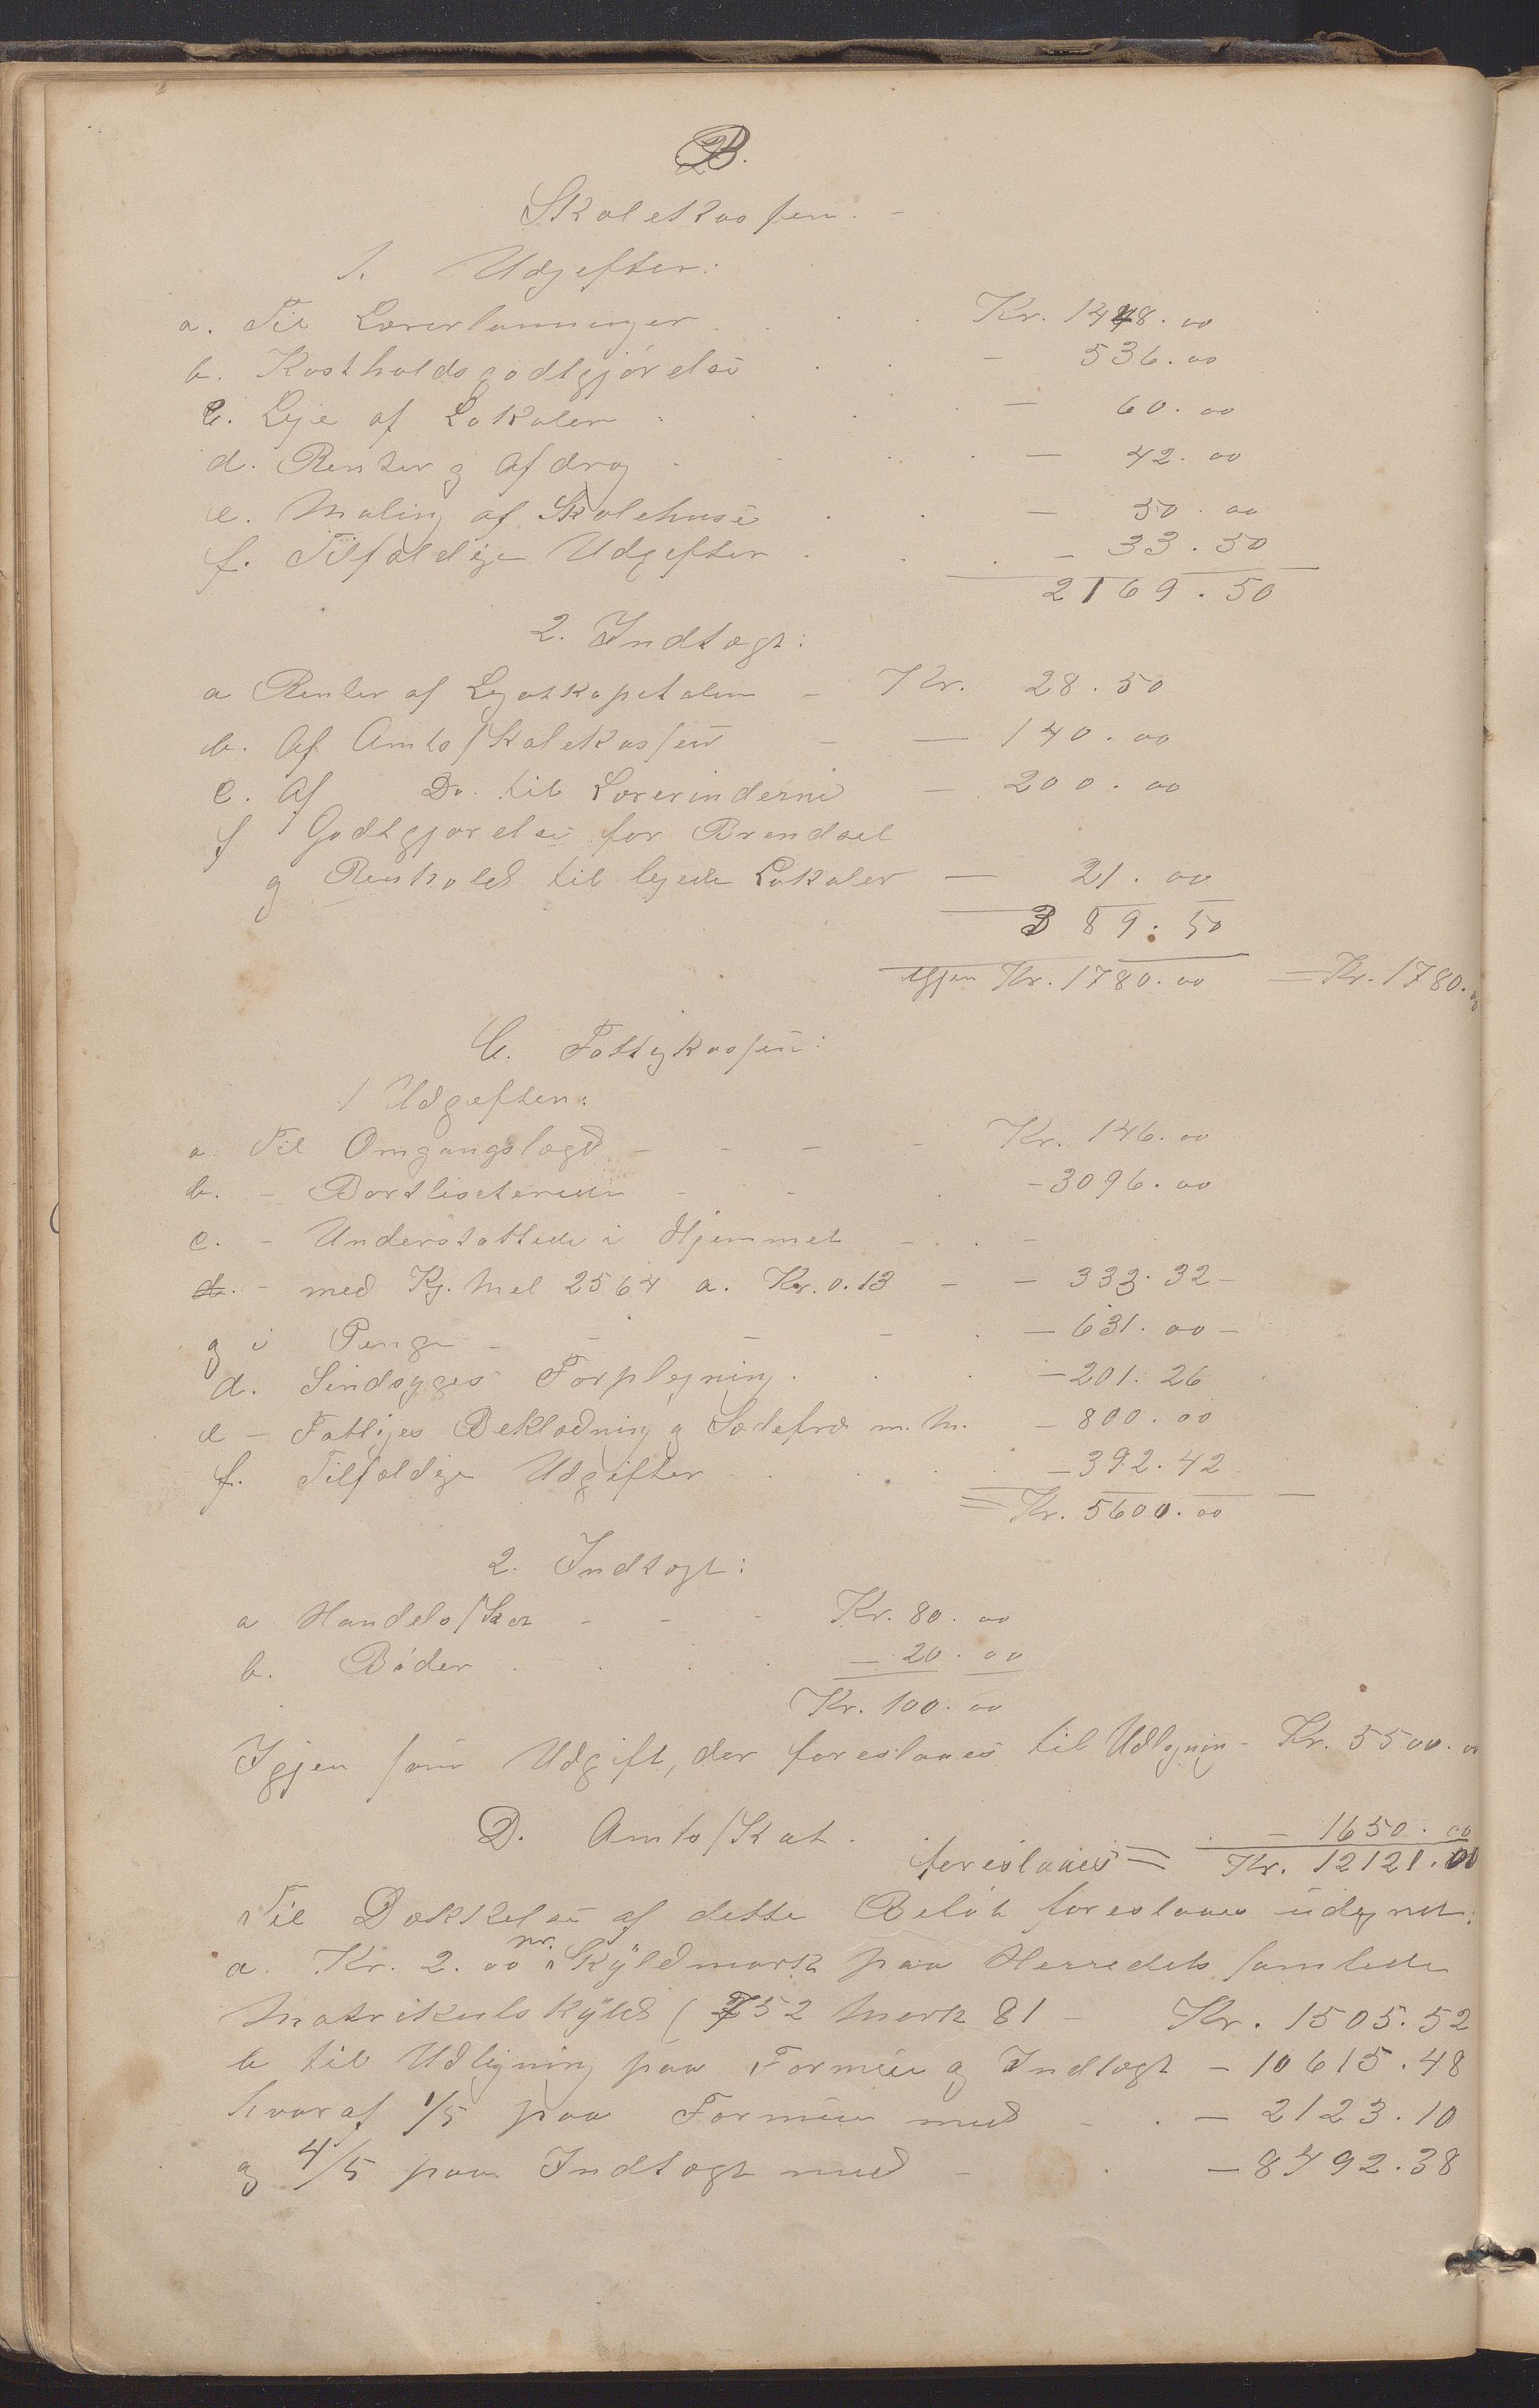 B.
Skolekassen. -
1. Udgifter:
a. Til Lærerlønninger . . . Kr. 1448. 00
b. Kostholdsgodtgjørelse . . - 536. 00
c. Leje af Lokaler . . . - 60. 00
d. Renter og Afdrag . . . - 42. 00
e. Maling af Skolehuse . . - 50. 00
f. Tilfældige Udgifter . . . - 33. 50
2169. 50
2. Indtægt:
a Renter af Legatkapitalen - Kr. 28. 50
b. Af Amtsskolekassen - - 140. 00
c. Af Do. til Lærerinderne - 200. 00
f Godtgjørelse for Brendsel
og Renhold til lejede Lokaler - 21. 00
389. 50
igjen Kr. 1780. 00 = Kr. 1780. 00
C. Fattigkassen:
1 Udgifter:
a. Til Omgangslægd - - - - Kr. 146. 00
b. - Bortliciterede - - . - 3096. 00
c. - Understøttede i Hjemmet - . -
d. - med Kg. Mel 2564 a. Kr. 0.13 - - 333. 32 -
og i Penge - - - - . - 631. 00 -
d. Sindsyges Forplejning . . . - 201. 26
e - Fattiges Beklædning og Sædefrø m. M. - 800. 00
f. Tilfældige Udgifter . . . . - 392. 42
= Kr. 5600. 00
2. Indtægt:
a Handelsskat - - - Kr. 80. 00
b. Bøder . . . . - 20. 00
Kr. 100. 00
Igjen som Udgift, der foreslaaes til Udligning - Kr. 5500. 00
D. Amtsskat . . . - 1650. 00
foreslaaes = Kr. 12121. 00
Til Dækkelse af dette Beløb foreslaaes udlignet:
a. Kr. 2. 00 pr. Skyldmark paa Herredets samlede
Matrikulskyld ( 752 Mark 81 - Kr. 1505. 52
b til Udligning paa Formue og Indtægt - 10615. 48
hvoraf 1/5 paa Formue med - . - 2123. 10
og 4/5 paa Indtægt med - . - 8492. 38